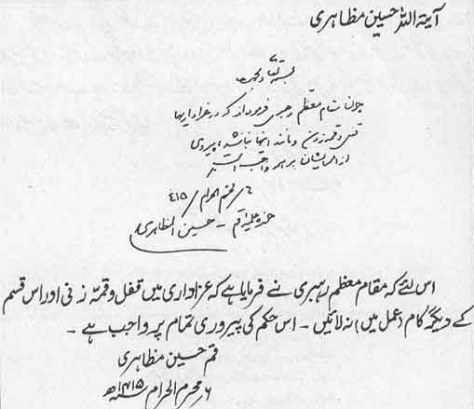 آیۃ اللہ حسین مظاہری
بسمہ تعالی
چون مقام معظم رهبری فرموده‌اند که در عزاداریها
قفل و قمه زدن و مانند اینها نباشد، پیروی
از ایشان بر همه واجب است
۶ / محرم الحرام / ۴۱۵
حوزه علمیه قم - حسین المظاهری
اس لئے کہ مقام معظم رہبری نے فرمایا ہے کہ عزاداری میں قفل و قمہ زنی اور اس قسم
کے دیگر کام (عمل میں) نہ لائیں - اس حکم کی پیروری تمام پر واجب ہے -
قم حسین مظاہری
۶ محرم الحرام ۱۴۱۵ھ